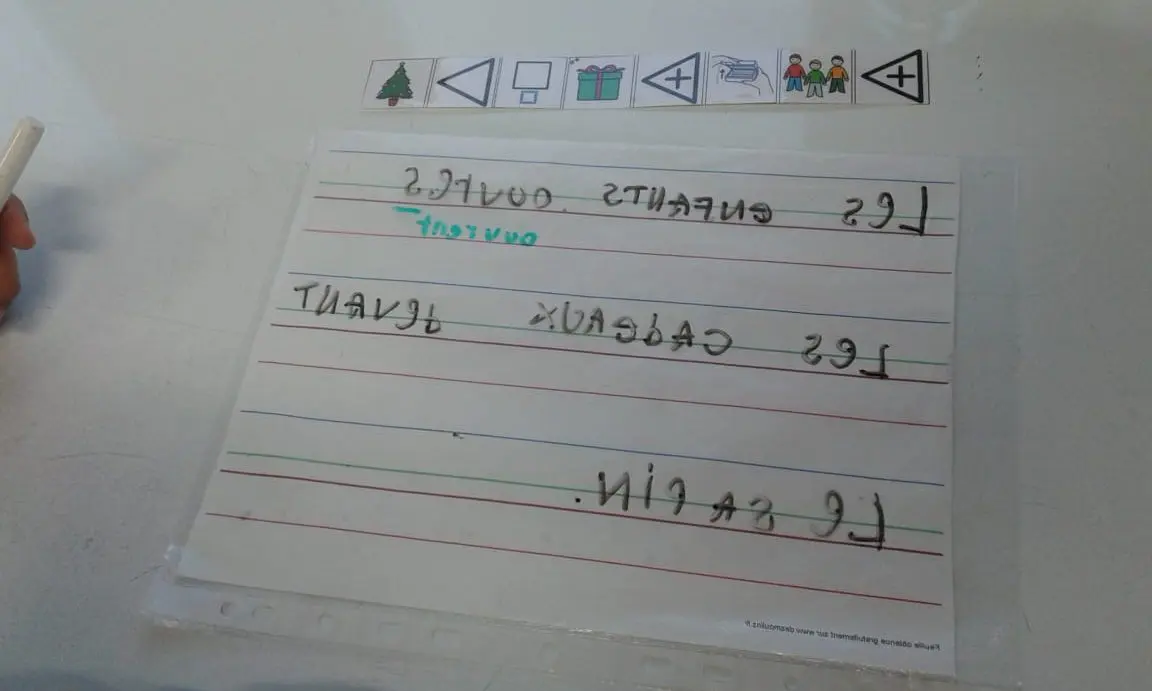 Les eNFANTS ouvres
ouvrent
Les CAdeAUx deVANT
Le sApiN.
Feuille obtenue gratuitement sur www